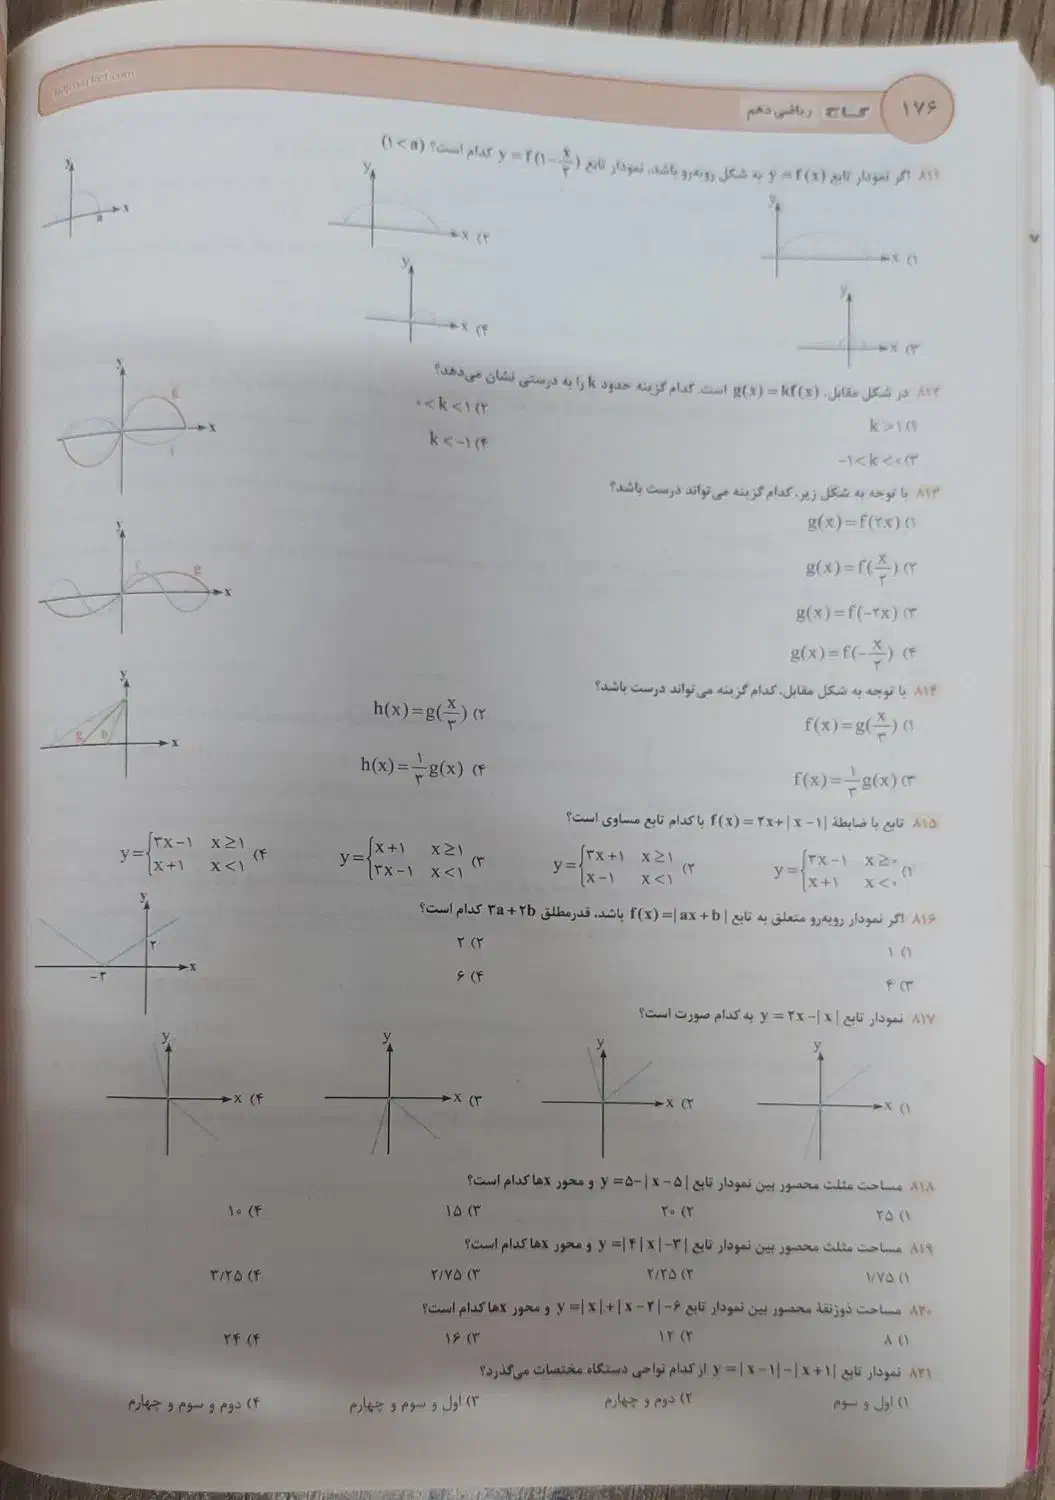 ۱۷۶ گاج ریاضی دهم
۸۱۱ اگر نمودار تابع y = f(x) به شکل روبه‌رو باشد، نمودار تابع y = f(۱-x/۳) کدام است؟ (۱ < a)
y x a
۱) y x
۲) y x
۳) y x
۴) y x
۸۱۲ در شکل مقابل، g(x) = kf(x) است. کدام گزینه حدود k را به درستی نشان می‌دهد؟
۱) k > ۱
۲) ۰ < k < ۱
۳) -۱ < k < ۰
۴) k < -۱
y x g f
۸۱۳ با توجه به شکل زیر، کدام گزینه می‌تواند درست باشد؟
۱) g(x) = f(۲x)
۲) g(x) = f(x/۲)
۳) g(x) = f(-۲x)
۴) g(x) = f(-x/۲)
y x f g
۸۱۴ با توجه به شکل مقابل، کدام گزینه می‌تواند درست باشد؟
۱) f(x) = g(x/۳)
۲) h(x) = g(x/۳)
۳) f(x) = ۱/۳ g(x)
۴) h(x) = ۱/۳ g(x)
y x g h
۸۱۵ تابع با ضابطهٔ f(x) = ۲x+|x-۱| با کدام تابع مساوی است؟
۱) y = {۳x-۱ x≥۰ , x+۱ x<۰
۲) y = {۳x+۱ x≥۱ , x-۱ x<۱
۳) y = {x+۱ x≥۱ , ۳x-۱ x<۱
۴) y = {۳x-۱ x≥۱ , x+۱ x<۱
۸۱۶ اگر نمودار روبه‌رو متعلق به تابع f(x) = |ax+b| باشد، قدرمطلق ۳a+۲b کدام است؟
۱) ۱
۲) ۲
۳) ۴
۴) ۶
y x ۲ -۳
۸۱۷ نمودار تابع y = ۲x-|x| به کدام صورت است؟
۱) y x
۲) y x
۳) y x
۴) y x
۸۱۸ مساحت مثلث محصور بین نمودار تابع y = ۵-|x-۵| و محور xها کدام است؟
۱) ۲۵ ۲) ۲۰ ۳) ۱۵ ۴) ۱۰
۸۱۹ مساحت مثلث محصور بین نمودار تابع y = |۴|x|-۳| و محور xها کدام است؟
۱) ۱/۷۵ ۲) ۲/۲۵ ۳) ۲/۷۵ ۴) ۳/۲۵
۸۲۰ مساحت ذوزنقهٔ محصور بین نمودار تابع y = |x|+|x-۲|-۶ و محور xها کدام است؟
۱) ۸ ۲) ۱۲ ۳) ۱۶ ۴) ۲۴
۸۲۱ نمودار تابع y = |x-۱|-|x+۱| از کدام نواحی دستگاه مختصات می‌گذرد؟
۱) اول و سوم ۲) دوم و چهارم ۳) اول و سوم و چهارم ۴) دوم و سوم و چهارم